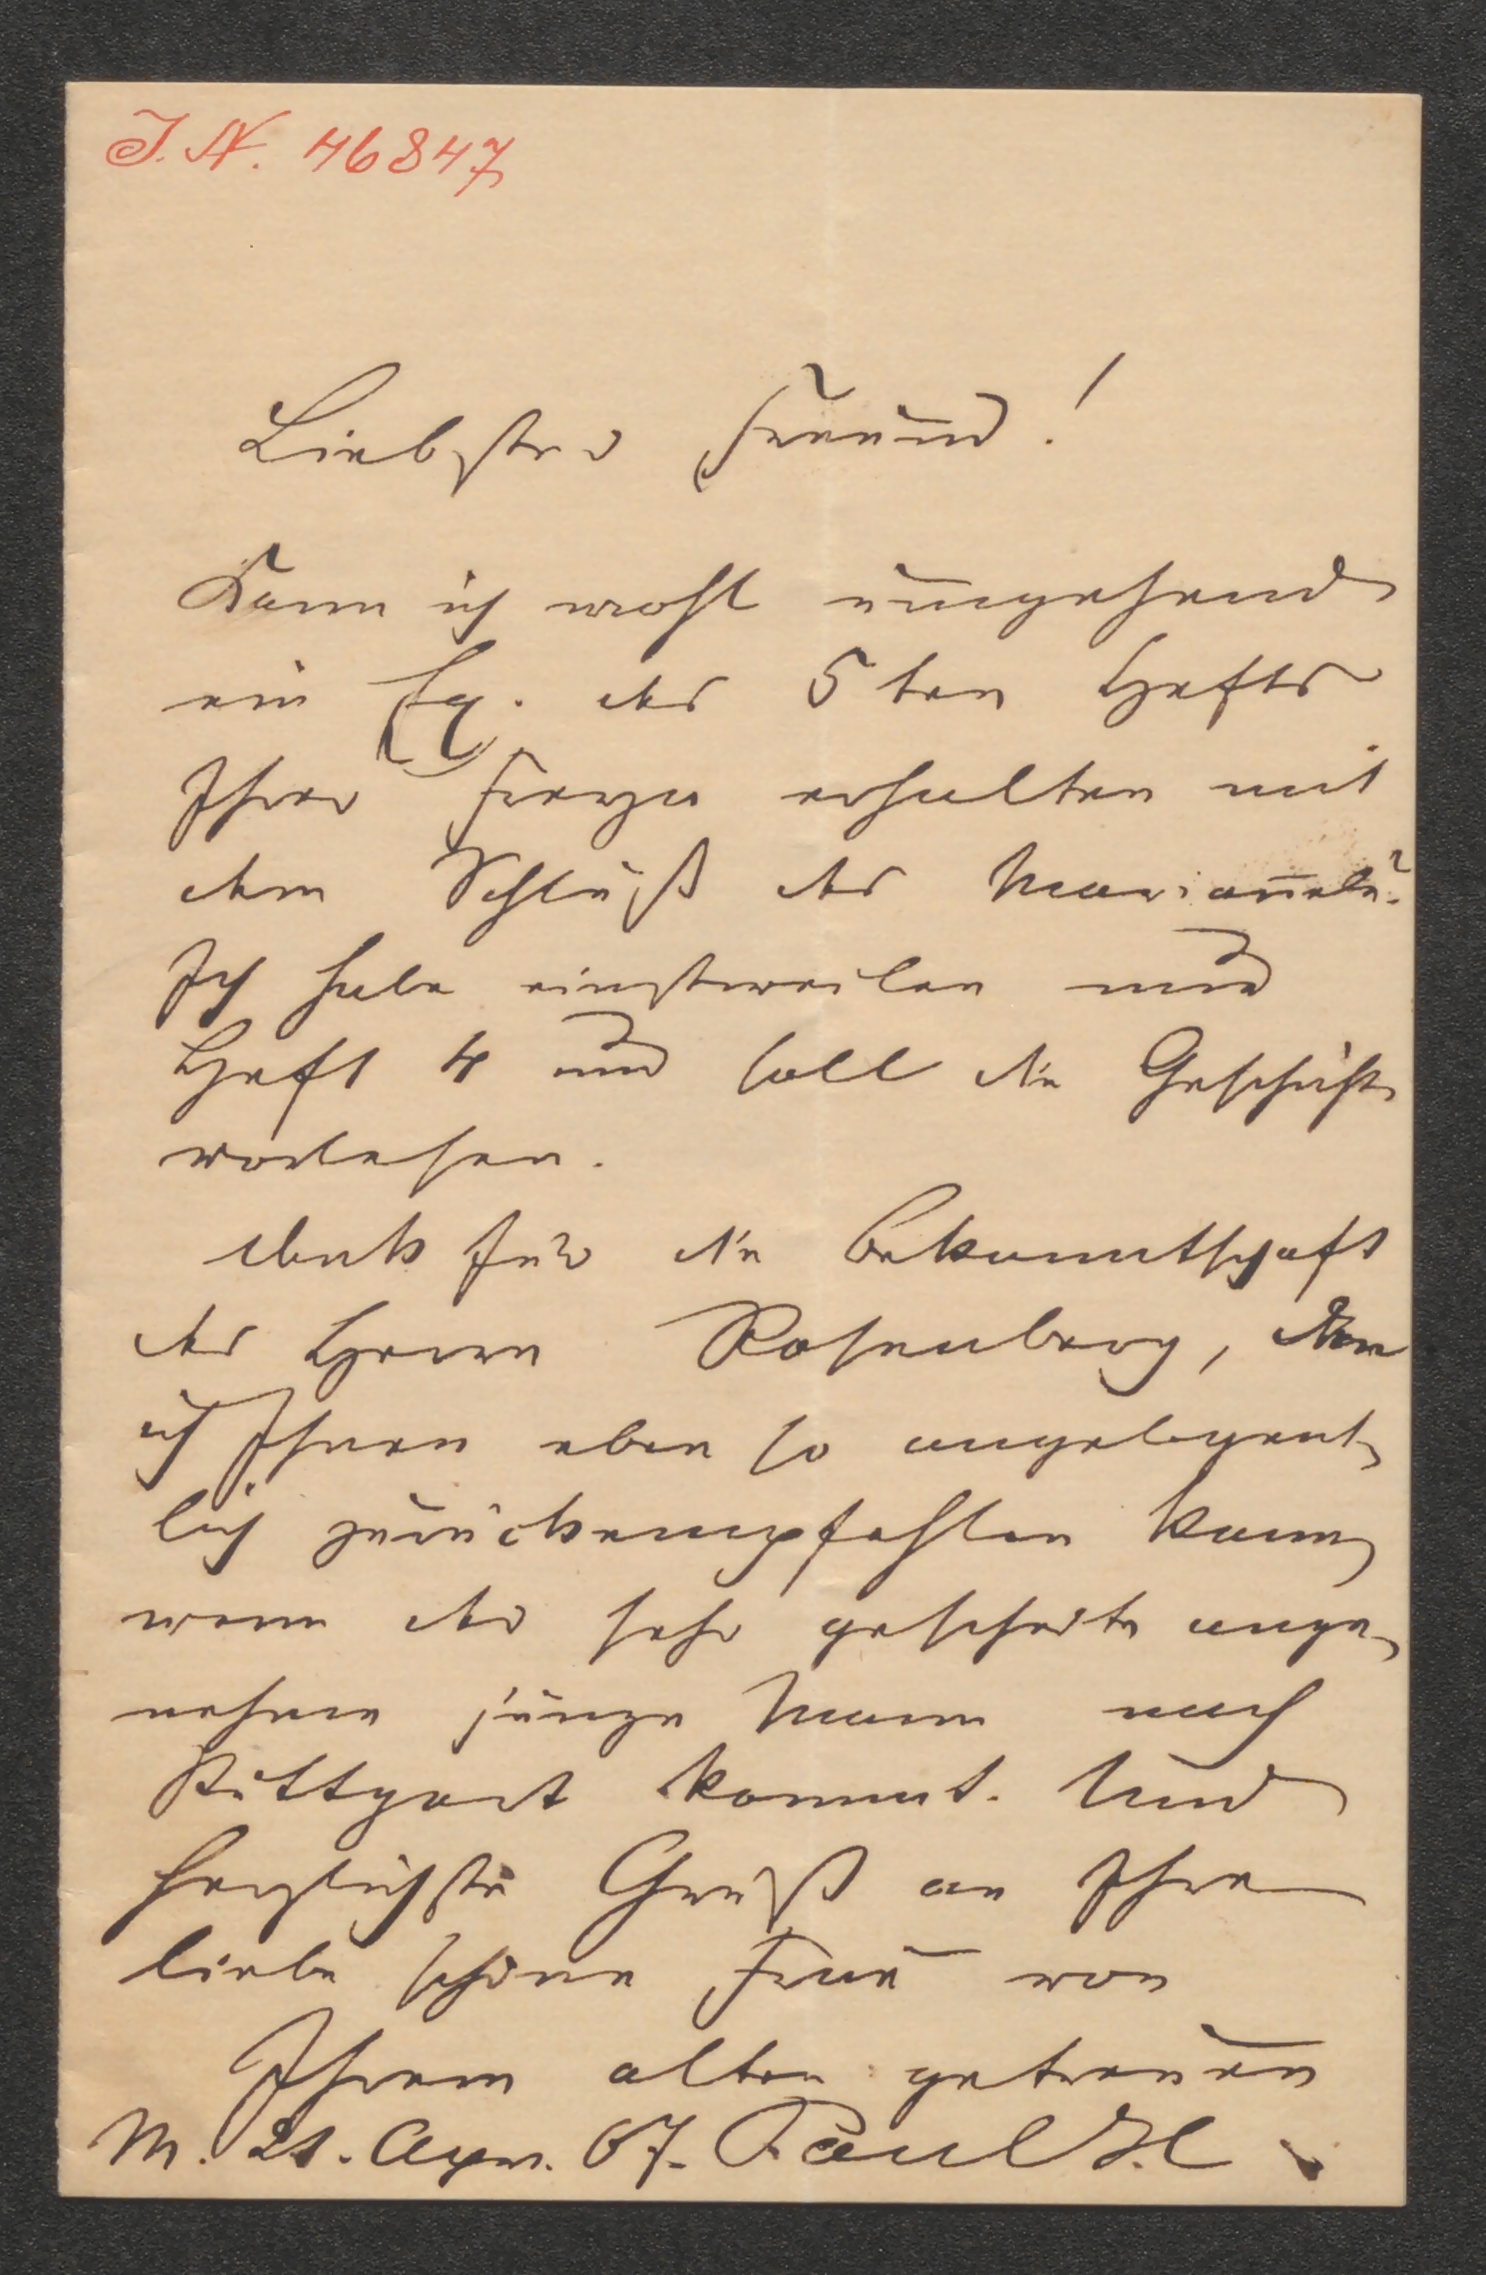 J. N. 46847
Liebster Freund!
Kann ich wohl umgehend
ein Ex. des 5ten Hefts
Ihrer Freya erhalten mit
dem Schluß des
Ich habe einstweilen nur
Heft 4 und soll die Geschichte
vorlesen.
Dank für die Bekanntschaft
des Herrn Rosenberg, den
ich Ihnen eben so angelegent-
lich zurückempfehlen kann,
wenn der sehr gescheite ange-
nehme junge Mann nach
Stuttgart kommt. Und
herzlichste Grüße an Ihre
liebe schöne Frau von
Ihrem alten getreuen
M. 21. Apr. 67. Paul H.